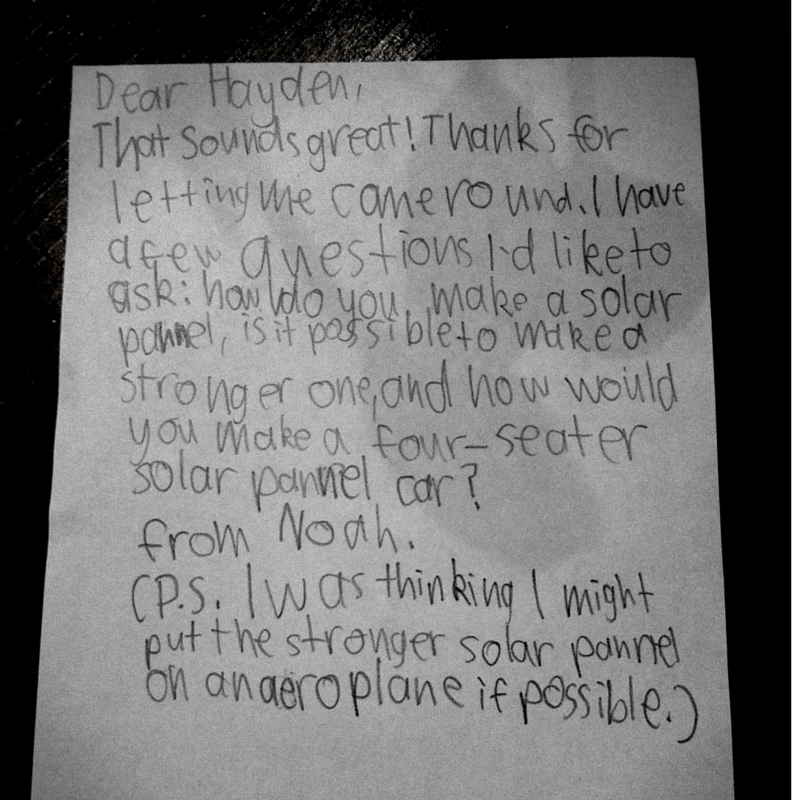 Dear Hayden,
That sounds great! Thanks for
letting me come round. I have
a few questions I'd like to
ask: how do you make a solar
pannel, is it possible to make a
stronger one, and how would
you make a four-seater
solar pannel car?
from Noah.
(P.S. I was thinking I might
put the stronger solar pannel
on an aeroplane if possible.)